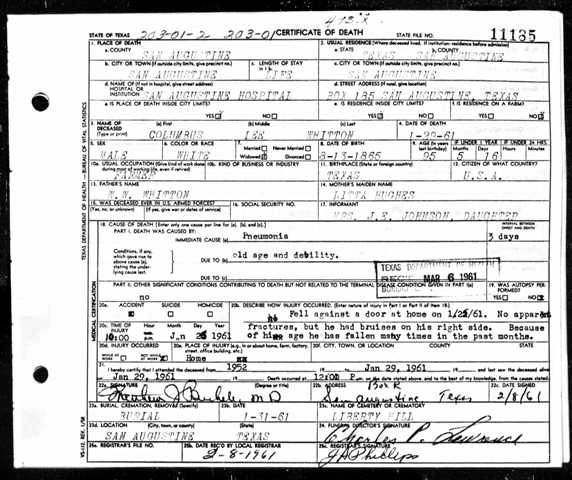 4737
203-01-2 203-01
STATE OF TEXAS CERTIFICATE OF DEATH STATE FILE NO. 11135
1. PLACE OF DEATH 2. USUAL RESIDENCE (Where deceased lived. If institution: residence before admission)
a. COUNTY SAN AUGUSTINE a. STATE TEXAS b. COUNTY SAN AUGUSTINE
b. CITY OR TOWN (If outside city limits, give precinct no.) c. LENGTH OF STAY c. CITY OR TOWN (If outside city limits, give precinct no.)
SAN AUGUSTINE LIFE SAN AUGUSTINE
d. NAME OF (If not in hospital, give street address) d. STREET ADDRESS (If rural, give location)
HOSPITAL OR
INSTITUTION SAN AUGUSTINE HOSPITAL BOX 185 SAN AUGUSTINE, TEXAS
e. IS PLACE OF DEATH INSIDE CITY LIMITS? e. IS RESIDENCE INSIDE CITY LIMITS? f. IS RESIDENCE ON A FARM?
YES NO YES NO YES NO
3. NAME OF DECEASED (Type or print) (a) First (b) Middle (c) Last 4. DATE OF DEATH
COLUMBUS LEE WHITTON 1-29-61
5. SEX 6. COLOR OR RACE 7. Married Never Married 8. DATE OF BIRTH 9. AGE (In years last birthday) IF UNDER 1 YEAR IF UNDER 24 HRS.
MALE WHITE Widowed Divorced 8-13-1865 95 Months 5 Days 16 Hours
10a. USUAL OCCUPATION (Give kind of work done 10b. KIND OF BUSINESS OR INDUSTRY 11. BIRTHPLACE (State or foreign country) 12. CITIZEN OF WHAT COUNTRY?
FARMER TEXAS U.S.A.
13. FATHER'S NAME 14. MOTHER'S MAIDEN NAME
W.W. WHITTON HUGHES
15. WAS DECEASED EVER IN U.S. ARMED FORCES? 16. SOCIAL SECURITY NO. 17. INFORMANT
(If yes, give war or dates of service) MRS. J.E. JOHNSON, DAUGHTER
18. CAUSE OF DEATH [Enter only one cause per line for (a), (b), and (c).] INTERVAL BETWEEN ONSET AND DEATH
PART I. DEATH WAS CAUSED BY:
IMMEDIATE CAUSE (a) Pneumonia 3 days
Conditions, if any, which gave rise to above cause (a), stating the underlying cause last.
DUE TO (b) old age and debility.
DUE TO (c)
TEXAS DEPARTMENT OF HEALTH
REC'D MAR 6 1961
PART II. OTHER SIGNIFICANT CONDITIONS CONTRIBUTING TO DEATH BUT NOT RELATED TO THE TERMINAL DISEASE CONDITION GIVEN IN PART I(a) 19. WAS AUTOPSY PERFORMED?
no YES NO
20a. ACCIDENT SUICIDE HOMICIDE 20b. DESCRIBE HOW INJURY OCCURRED. (Enter nature of injury in Part I or Part II of item 18.)
Fell against a door at home on 1/25/61. No apparent
20c. TIME OF INJURY Hour Month Day Year fractures, but he had bruises on his right side. Because
10:00 Jan 1961 of his age he has fallen many times in the past months.
20d. INJURY OCCURRED 20e. PLACE OF INJURY (e.g., in or about home, farm, factory, street, office building, etc.) 20f. CITY, TOWN, OR LOCATION COUNTY STATE
WHILE AT WORK NOT WHILE AT WORK Home
21. I hereby certify that I attended the deceased from 1952 to Jan 29, 1961 and last saw the deceased alive
on Jan 29, 1961 Death occurred at 12:00 P m. on the date stated above, and to the best of my knowledge, from the causes stated.
22a. SIGNATURE (Degree or title) 22b. ADDRESS Box R 22c. DATE SIGNED
M D San Augustine Texas 2/8/61
23a. BURIAL, CREMATION, REMOVAL (Specify) 23b. DATE 23c. NAME OF CEMETERY OR CREMATORY
BURIAL 1-31-61 LIBERTY HILL
23d. LOCATION (City, town, or county) (State) 24. FUNERAL DIRECTOR'S SIGNATURE
SAN AUGUSTINE TEXAS Charles P. Lawrence
25a. REGISTRAR'S FILE NO. 25b. DATE REC'D BY LOCAL REGISTRAR 25c. REGISTRAR'S SIGNATURE
2-8-1961 J A Phillips
TEXAS DEPARTMENT OF HEALTH—BUREAU OF VITAL STATISTICS
MEDICAL CERTIFICATION